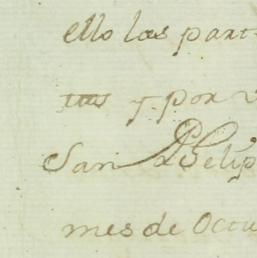 ello las part
y por
San Phelip
mes de Octu